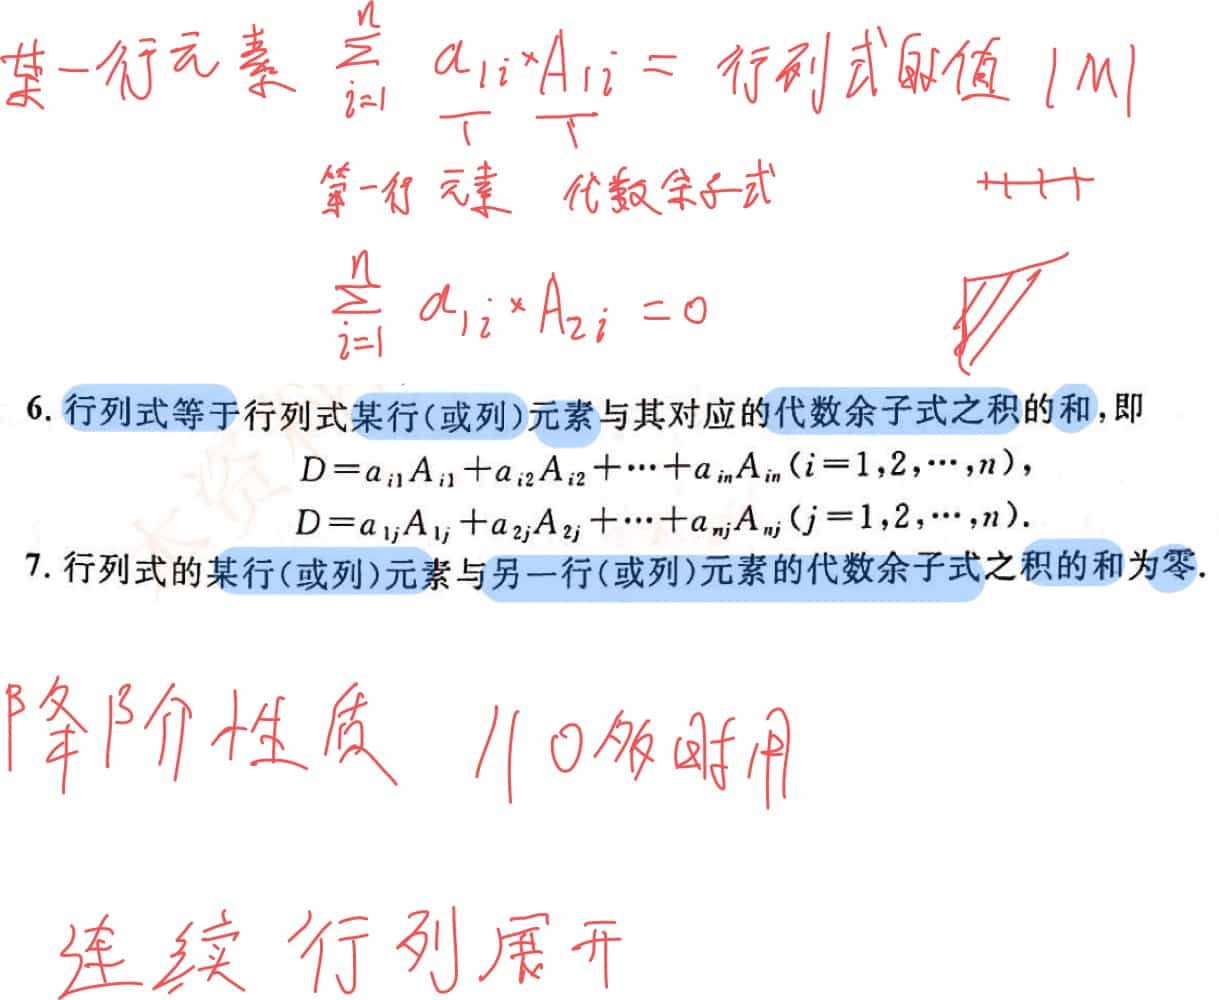 某一行元素 $\sum_{i=1}^{n} a_{1i} \times A_{1i}$ = 行列式的值 |M|
第一行元素 代数余子式
$\sum_{i=1}^{n} a_{1i} \times A_{2i} = 0$
6. 行列式等于行列式某行(或列)元素与其对应的代数余子式之积的和,即
$D=a_{i1}A_{i1}+a_{i2}A_{i2}+\cdots+a_{in}A_{in}(i=1,2,\cdots,n),$
$D=a_{1j}A_{1j}+a_{2j}A_{2j}+\cdots+a_{nj}A_{nj}(j=1,2,\cdots,n).$
7. 行列式的某行(或列)元素与另一行(或列)元素的代数余子式之积的和为零.
降阶性质 // 0多时用
连续行列展开